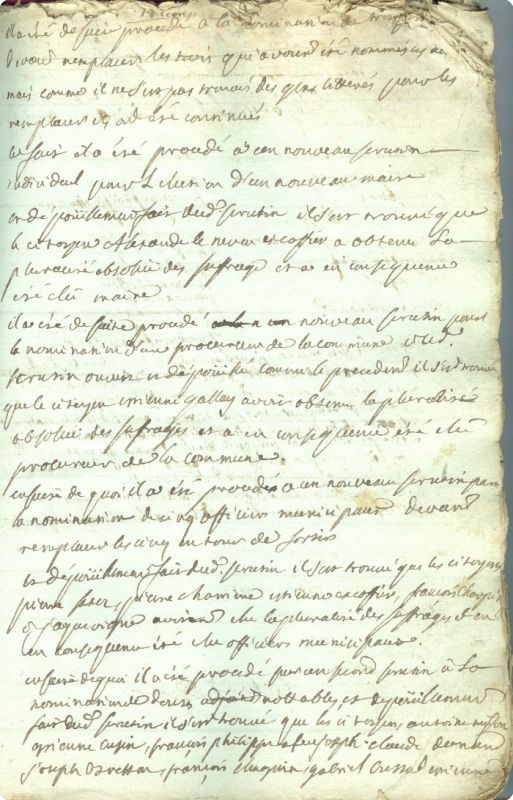 il a été de suite procédé a la nomination de trois
devant remplacer les trois qui avoient été nommés
mais comme il ne s'est pas trouvé des gens lettrés pour les
remplacer ils ont été continués
ce fait il a été procédé a un nouveau scrutin
individuel pour l'election d'un nouveau maire
et depouillement fait dud. scrutin il s'est trouvé que
le citoyen Alexandre le neveu escoffier a obtenu la
pluralité absolue des suffrages et a en consequence
été elu maire
il a été de suite procédé a un nouveau scrutin pour
la nomination d'un procureur de la commune et led.
scrutin ouvert et depouillé comme le precedent il s'est trouvé
que le citoyen etienne avoir obtenu la pluralité
absolue des suffrages et a en consequence été elu
procureur de la commune.
ensuite de quoi il a été procédé a un nouveau scrutin par
la nomination de cinq officiers municipaux devant
remplacer les cinq en tour de sortir
et depouillement fait dud. scrutin il s'est trouvé que les citoyens
pierre pierre charriere etienne escoffier, françois
& jaque avoient eu la pluralité des suffrages et ont
en consequence été elu officiers municipaux.
ensuite de quoi il a été procédé par un second scrutin a la
nomination de nottables et depouillement
fait dud. scrutin il s'est trouvé que les citoyens antoine
etienne françois philippe joseph claude
joseph françois gabriel etienne